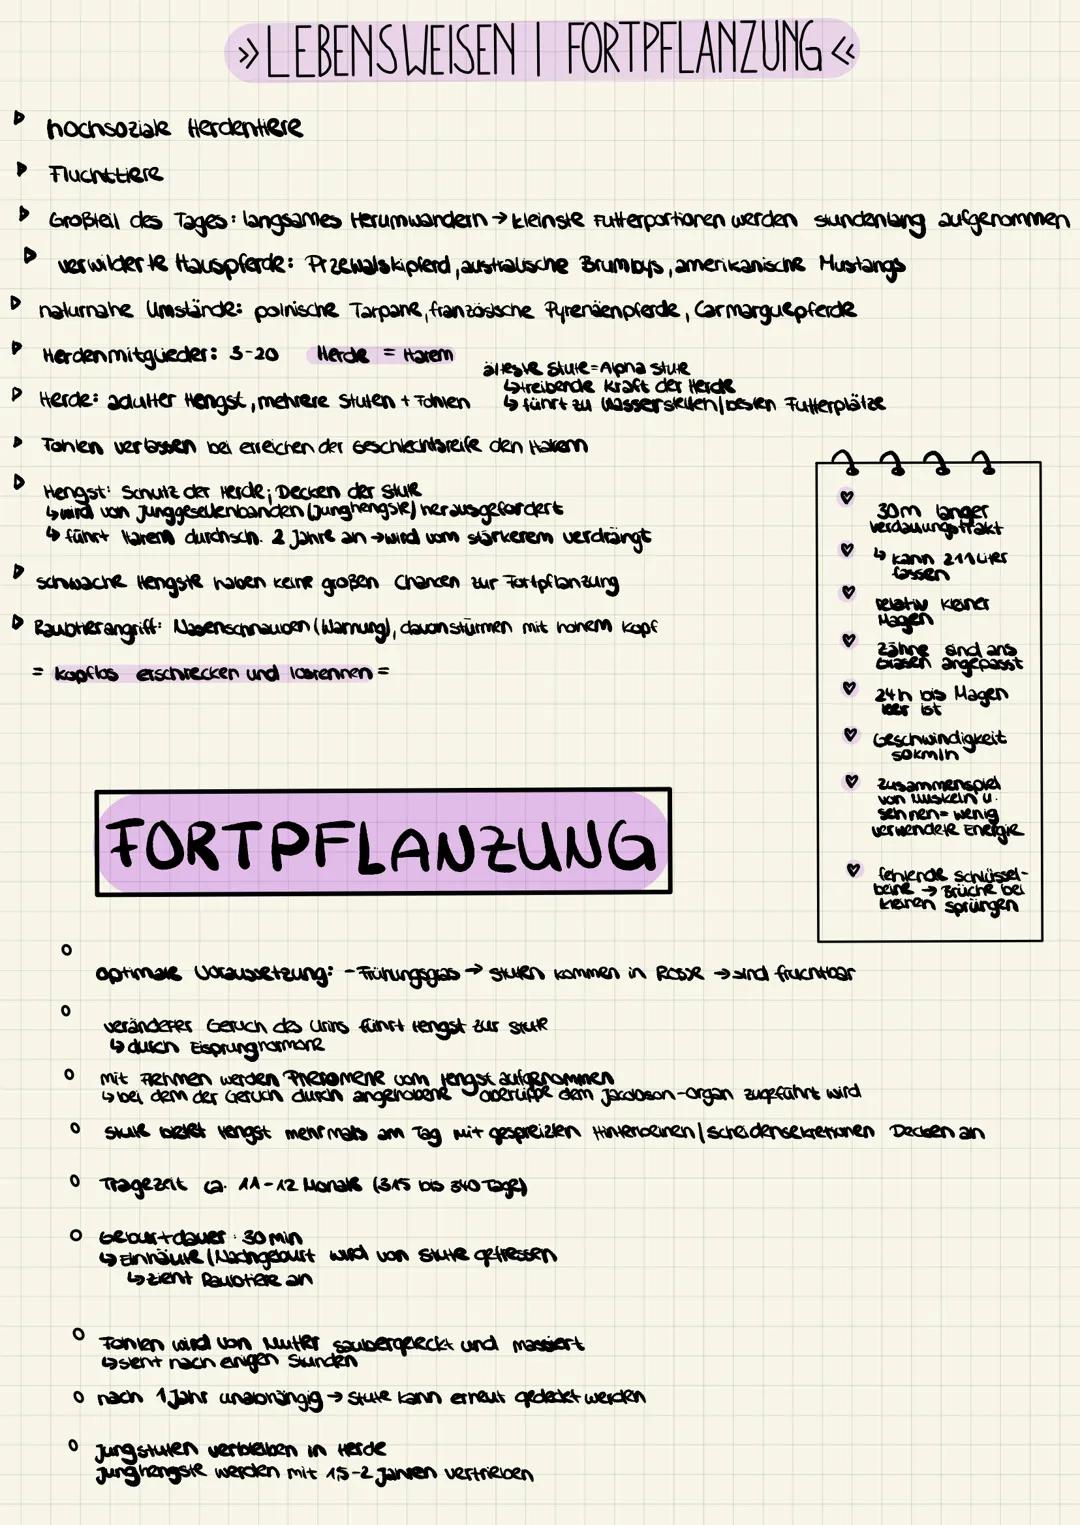 » LEBENSWEISEN | FORTPFLANZUNG «
hochsoziale Herdentiere
Fluchttiere
Großteil des Tages: langsames Herumwandern → kleinste Futterportionen werden stundenlang aufgenommen
verwilderte Hauspferde: Przewalskipferd, australische Brumbys, amerikanische Mustangs
naturnahe Umstände: polnische Tarpane, französische Pyrenäenpferde, Carmarguepferde
Herdenmitglieder: 3-20 Herde = Harem
älteste Stute = Alpha Stute
↳ treibende Kraft der Herde
Herde: adulter Hengst, mehrere Stuten + Fohlen ↳ führt zu Wasserstellen/besten Futterplätze
Fohlen verlassen bei erreichen der Geschlechtsreife den Harem
Hengst: Schutz der Herde; Decken der Stute
↳ wird von Junggesellenbanden (Junghengste) herausgefordert
↳ führt Harem durchsch. 2 Jahre an → wird vom stärkerem verdrängt
schwache Hengste haben keine großen Chancen zur Fortpflanzung
Raubtierangriff: Nasenschnauben (Warnung), davonstürmen mit hohem Kopf
= kopflos erschrecken und losrennen =
30m langer
Verdauungstrakt
↳ kann 211 Liter
fassen
relativ kleiner
Magen
Zähne sind ans
Grasen angepasst
24h bis Magen
leer ist
Geschwindigkeit
50km/h
Zusammenspiel
von Muskeln u.
Sehnen = wenig
verwendete Energie
fehlende Schlüssel-
beine → Brüche bei
kleinen Sprüngen
FORTPFLANZUNG
optimale Voraussetzung: - Frühlingsgras → Stuten kommen in Rosse → sind fruchtbar
veränderter Geruch des Urins führt Hengst zur Stute
↳ durch Eisprunghormone
mit Flehmen werden Pheromene vom Hengst aufgenommen
↳ bei dem der Geruch durch angehobene Oberlippe dem Jacobson-Organ zugeführt wird
Stute bietet Hengst mehrmals am Tag mit gespreizten Hinterbeinen/Scheidensekretionen Decken an
Tragezeit ca. 11-12 Monate (315 bis 340 Tage)
Geburtdauer: 30 min
↳ Eihhäute/Nachgeburt wird von Stute gefressen
↳ zieht Raubtiere an
Fohlen wird von Mutter saubergeleckt und massiert
↳ steht nach einigen Stunden
nach 1 Jahr unabhängig → Stute kann erneut gedeckt werden
Jungstuten verbleiben in Herde
Junghengste werden mit 1,5-2 Jahren vertrieben